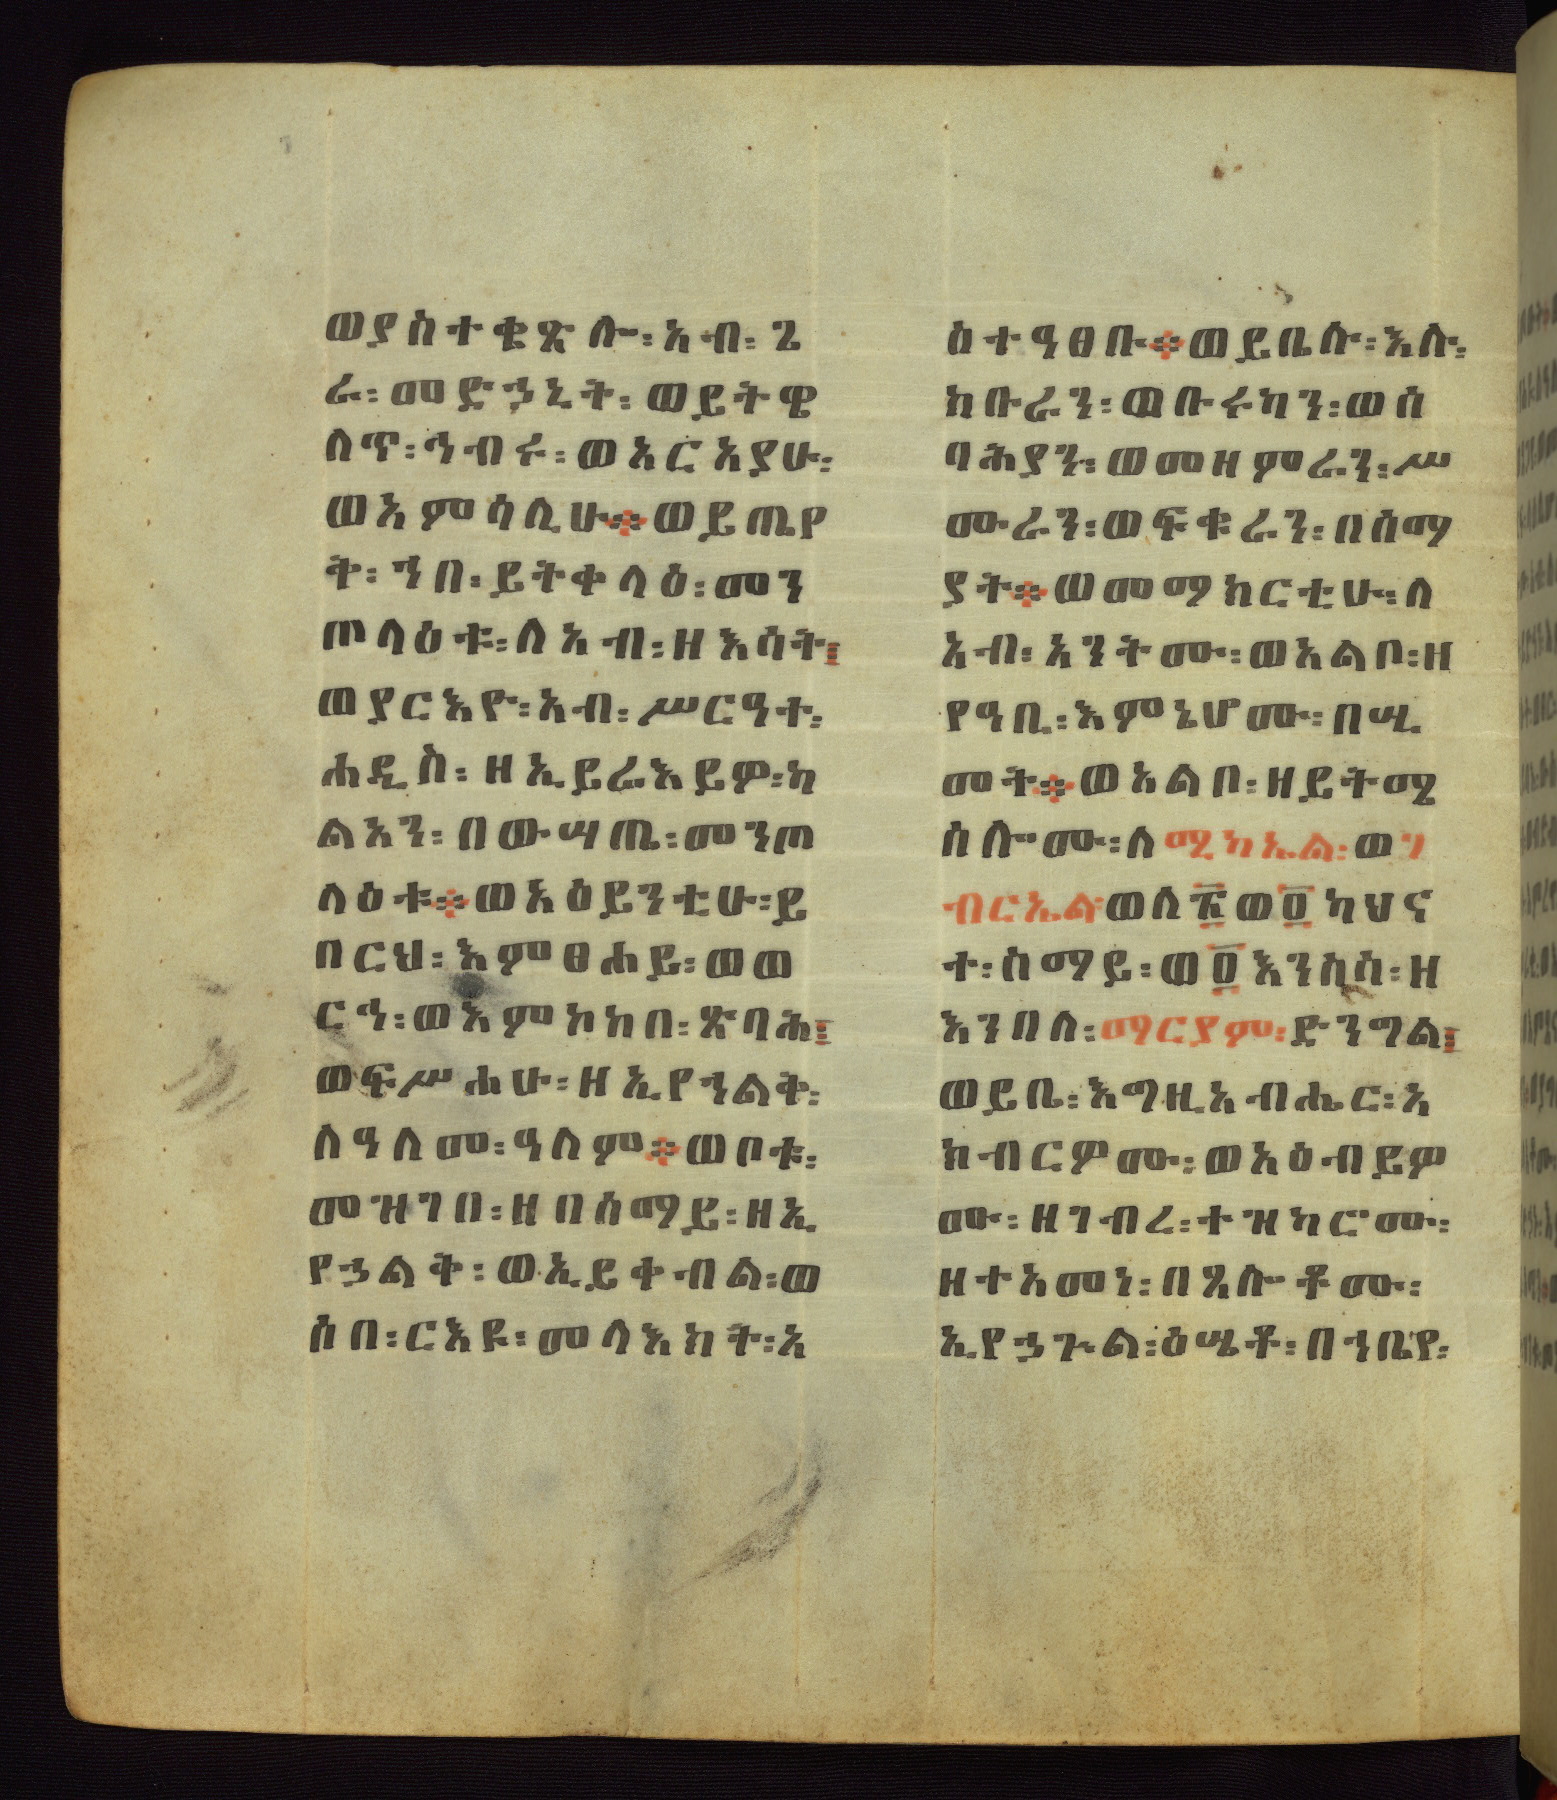 ወያስተቄጽሎ፡አብ፡ጌ
ራ፡መድኃኒት፡ወይትዌ
ለጥ፡ኅብሩ፡ወአርአያሁ፡
ወአምሳሊሁ፨ወይጤየ
ቅ፡ኀበ፡ይትቀላዕ፡መን
ጦላዕቱ፡ለአብ፡ዘእሳት፤
ወያርእዮ፡አብ፡ሥርዓተ፡
ሐዲስ፡ዘኢይሬእይዎ፡ካ
ልእን፡በውሣጤ፡መንጦ
ላዕቱ፨ወአዕይንቲሁ፡ይ
በርህ፡እምፀሐይ፡ወወ
ርኅ፡ወእምኮከበ፡ጽባሕ፤
ወፍሥሐሁ፡ዘኢየኀልቅ፡
ለዓለመ፡ዓለም፨ወቦቱ፡
መዝገበ፡ዘበሰማይ፡ዘኢ
የኃልቅ፡ወኢይቀብል፡ወ
ሶበ፡ርእዩ፡መላእክት፡አ
ስተዓፀቡ፨ወይቤሉ፡እሉ፡
ክቡራን፡ወቡሩካን፡ወሰ
ባሕያን፡ወመዘምራን፡ሥ
ሙራን፡ወፍቁራን፡በሰማ
ያት፨ወመማክርቲሁ፡ለ
አብ፡አንትሙ፡ወአልቦ፡ዘ
የዓቢ፡እምኔሆሙ፡በሢ
መት፨ወአልቦ፡ዘይትሜ
ሰሎሙ፡ለሚካኤል፡ወገ
ብርኤል፡ወለ፳ወ፬ካህና
ተ፡ሰማይ፡ወ፬እንስሳ፡ዘ
እንበለ፡ማርያም፡ድንግል፤
ወይቤ፡እግዚአብሔር፡አ
ክብርዎሙ፡ወአዕብይዎ
ሙ፡ዘገብረ፡ተዝካሮሙ፡
ዘተአመነ፡በጸሎቶሙ፡
ኢየኃጕል፡ዕሤቶ፡በኀቤየ፡